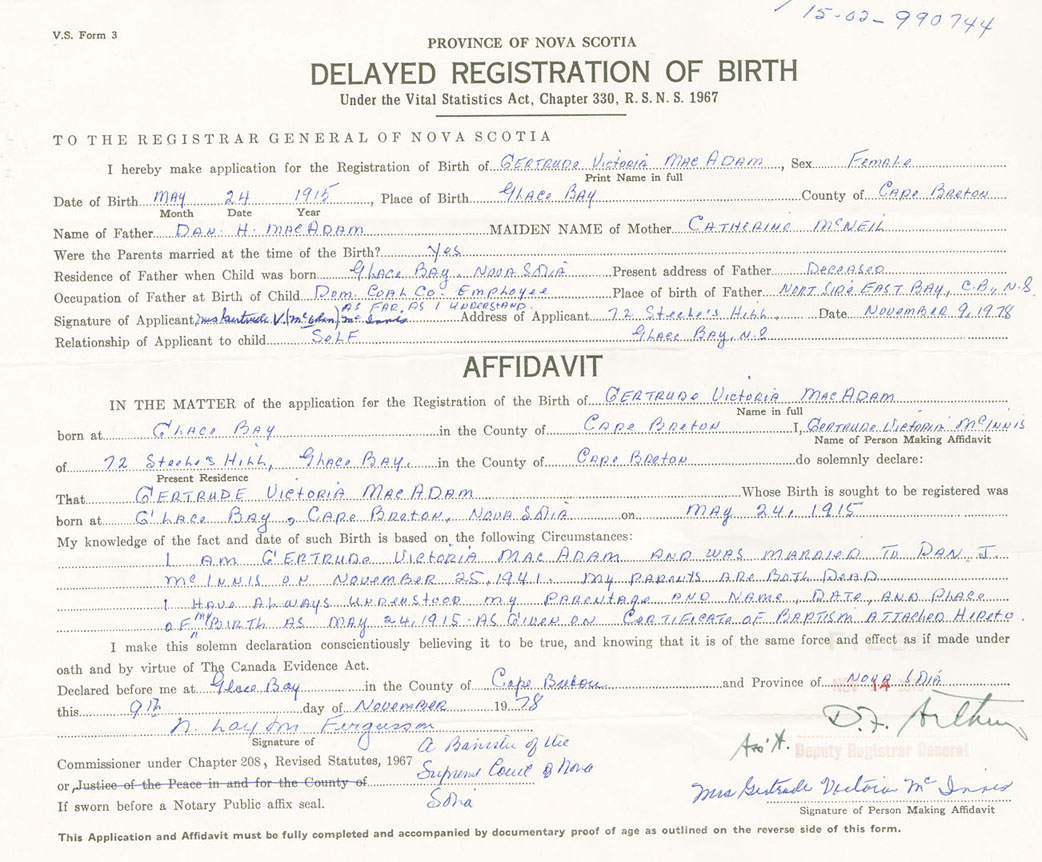 15-02-990744
V.S. Form 3
PROVINCE OF NOVA SCOTIA
DELAYED REGISTRATION OF BIRTH
Under the Vital Statistics Act, Chapter 330, R.S.N.S. 1967
TO THE REGISTRAR GENERAL OF NOVA SCOTIA
I hereby make application for the Registration of Birth of GERTRUDE VICTORIA MACADAM, Sex FEMALE
Print Name in full
Date of Birth MAY 24 1915, Place of Birth GLACE BAY County of CAPE BRETON
Month Date Year
Name of Father DAN H. MACADAM MAIDEN NAME of Mother CATHERINE MCNEIL
Were the Parents married at the time of the Birth? YES
Residence of Father when Child was born GLACE BAY, NOVA SCOTIA Present address of Father DECEASED
Occupation of Father at Birth of Child DOM. COAL CO. EMPLOYEE Place of birth of Father NORT SIDE EAST BAY, C.B., N.S.
AS FAR AS I UNDERSTAND
Signature of Applicant Mrs Gertrude V. McInnis Address of Applicant 72 STEELE'S HILL, Date NOVEMBER 9, 1978
Relationship of Applicant to child SELF GLACE BAY, N.S
AFFIDAVIT
IN THE MATTER of the application for the Registration of the Birth of GERTRUDE VICTORIA MACADAM
Name in full
born at GLACE BAY in the County of CAPE BRETON I, GERTRUDE VICTORIA MCINNIS
Name of Person Making Affidavit
of 72 STEELE'S HILL, GLACE BAY, in the County of CAPE BRETON do solemnly declare:
Present Residence
That GERTRUDE VICTORIA MACADAM Whose Birth is sought to be registered was
born at GLACE BAY, CAPE BRETON, NOVA SCOTIA on MAY 24, 1915
My knowledge of the fact and date of such Birth is based on the following Circumstances:
I AM GERTRUDE VICTORIA MACADAM AND WAS MARRIED TO DAN J.
MCINNIS ON NOVEMBER 25, 1941. MY PARENTS ARE BOTH DEAD
I HAVE ALWAYS UNDERSTOOD MY PARENTAGE AND NAME, DATE, AND PLACE
OF MY BIRTH AS MAY 24, 1915 AS GIVEN ON CERTIFICATE OF BAPTISM ATTACHED HERETO.
I make this solemn declaration conscientiously believing it to be true, and knowing that it is of the same force and effect as if made under
oath and by virtue of The Canada Evidence Act.
FILED
Declared before me at Glace Bay in the County of Cape Breton and Province of NOVA SCOTIA
NOV 14
this 9th day of NOVEMBER 1978
N. Layton Fergusson
Signature of
D.F. Arthur
Ass't. Deputy Registrar General
A Barrister of the
Supreme Court of Nova
Scotia
Commissioner under Chapter 208, Revised Statutes, 1967
or Justice of the Peace in and for the County of
If sworn before a Notary Public affix seal.
Mrs Gertrude Victoria McInnis
Signature of Person Making Affidavit
This Application and Affidavit must be fully completed and accompanied by documentary proof of age as outlined on the reverse side of this form.